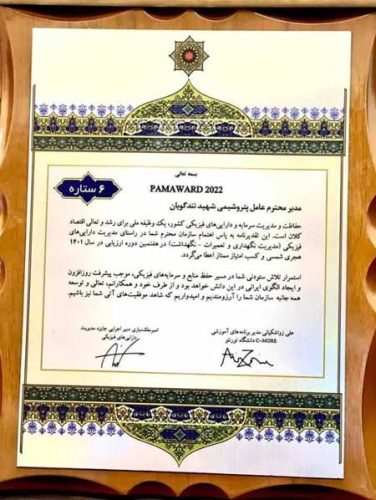 بسمه تعالی
۶ ستاره
PAMAWARD 2022
مدیر محترم عامل پتروشیمی شهید تندگویان
حفاظت و مدیریت سرمایه و دارایی‌های فیزیکی کشور، یک وظیفه ملی برای رشد و تعالی اقتصاد
کلان است. این تقدیرنامه به پاس اهتمام سازمان محترم شما در راستای مدیریت دارایی‌های
فیزیکی (مدیریت نگهداری و تعمیرات - نگهداشت) در هفتمین دوره ارزیابی در سال ۱۴۰۱
هجری شمسی و کسب امتیاز ممتاز اعطا می‌گردد.
استمرار تلاش ستودنی شما در مسیر حفظ منابع و سرمایه‌های فیزیکی، موجب پیشرفت روزافزون
و ایجاد الگوی ایرانی در این دانش خواهد بود و از طرف خود و همکارانم، تعالی و توسعه
همه جانبه سازمان شما را آرزومندیم و امیدواریم که شاهد موفقیت‌های آتی شما نیز باشیم.
علی زواشکیانی مدیر برنامه‌های آموزشی
C-MORE دانشگاه تورنتو
امیرملک‌نیازی دبیر اجرایی جایزه مدیریت
دارایی‌های فیزیکی